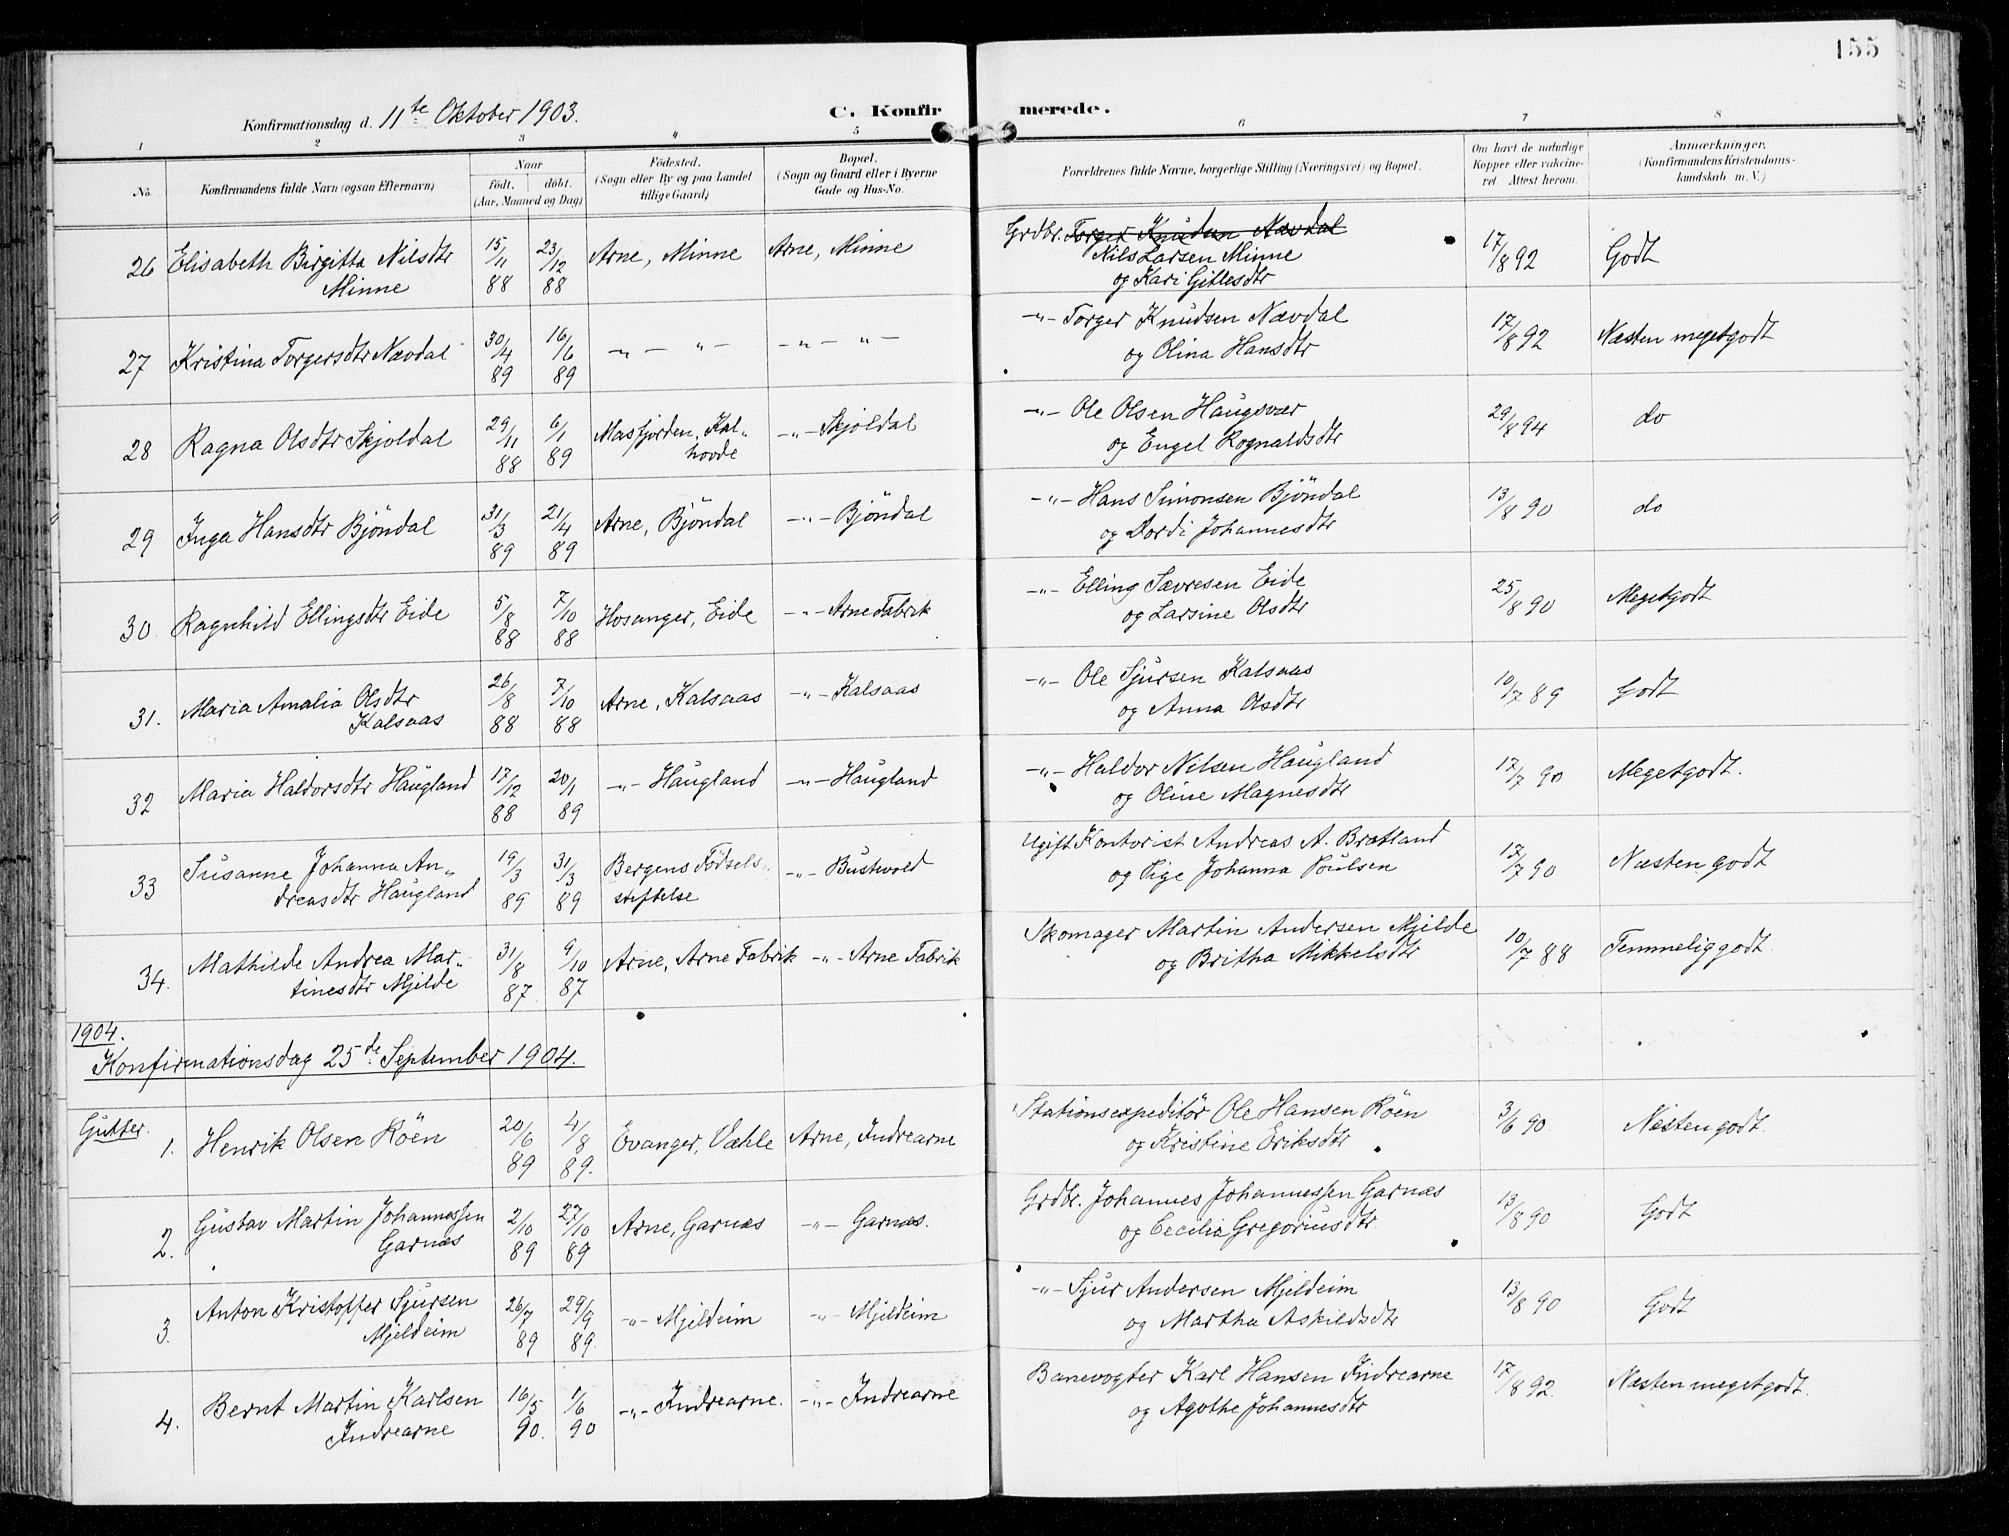 155
Konfirmationsdag d. 11te Oktober 1903.
C. Konfir merede.
1 2 3 4 5 6 7 8
No. Konfirmandens fulde Navn (ogsaa Efternavn) Naar födt. döbt. (Aar, Maaned og Dag) Födested. (Sogn eller By og paa Landet tillige Gaard) Bopæl. (Sogn og Gaard eller i Byerne Gade og Hus-No. Forældrenes fulde Navne, borgerlige Stilling (Næringsvei) og Bopæl. Om havt de naturlige Kopper eller vakcineret. Attest herom. Anmærkninger. (Konfirmandens Kristendomskundskab m. V.)
26 Elisabeth Birgitta Nilsdtr Minne 15/11 88 23/12 88 Arne, Minne Arne, Minne Grdbr. Torger Knudsen Nævdal Nils Larsen Minne og Kari Gitlesdtr 17/8 92 Godt
27 Kristina Torgersdtr Nævdal 30/4 89 16/6 89 -"- "- -"- "- -"- Torger Knudsen Nævdal og Olina Hansdtr 17/8 92 Næsten megetgodt
28 Ragna Olsdtr Skjoldal 29/11 88 6/1 89 Masfjorden, Kalhovde -"- Skjoldal -"- Ole Olsen Haugsvær og Engel Rognaldsdtr 29/8 94 do
29 Inga Hansdtr Bjöndal 31/3 89 21/4 89 Arne, Bjöndal -"- Bjöndal -"- Hans Simonsen Bjöndal og Dordi Johannesdtr 13/8 90 do
30 Ragnhild Ellingsdtr Eide 5/8 88 7/10 88 Hosanger, Eide -"- Arne Fabrik -"- Elling Sævresen Eide og Larsine Olsdtr 25/8 90 Megetgodt
31. Maria Amalia Olsdtr Kalsaas 26/8 88 7/10 88 Arne, Kalsaas -"- Kalsaas -"- Ole Sjursen Kalsaas og Anna Olsdtr 10/7 89 Godt
32 Maria Haldorsdtr Haugland 17/12 88 20/1 89 -"- Haugland -"- Haugland -"- Haldor Nilsen Haugland og Oline Magnesdtr 17/7 90 Megetgodt.
33 Susanne Johanna Andreasdtr Haugland 19/3 89 31/3 89 Bergens Födselsstiftelse -"- Ugift Kontorist Andreas A. Bratland og Pige Johanna Poulsen 17/7 90 Næsten godt
34. Mathilde Andrea Martinesdtr Mjelde 31/8 87 9/10 87 Arne, Arne Fabrik -"- Arne Fabrik Skomager Martin Andersen Mjelde og Britha Mikkelsdtr 10/7 88 Temmelig godt.
1904.
Konfirmationsdag 25de September 1904.
Gutter. 1. Henrik Olsen Röen 20/6 89 4/8 89. Evanger, Væhle Arne, Indrearne Stationsexpeditör Ole Hansen Röen og Kristine Eriksdtr 3/6 90. Næsten godt.
2. Gustav Martin Johannessen Garnæs 2/10 89 27/10 89 Arne, Garnæs -"- Garnæs. Grdbr. Johannes Johannessen Garnæs og Cecilia Gregoriusdtr. 13/8 90 Godt
3. Anton Kristoffer Sjursen Mjeldeim 26/7 89 29/9 89. -"- Mjeldeim -"- Mjeldeim -"- Sjur Andersen Mjeldeim og Martha Askildsdtr 13/8 90 Godt
4. Bernt Martin Karlsen Indrearne 16/5 90. 1/6 90 -"- Indrearne. -"- Indrearne Banevogter Karl Hansen Indrearne og Agothe Johannesdtr 17/8 92. Næsten megetgodt.